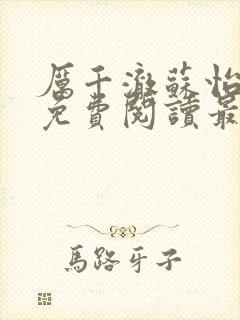 厲千澈蘇怡
免費閱讀最
馬路牙子